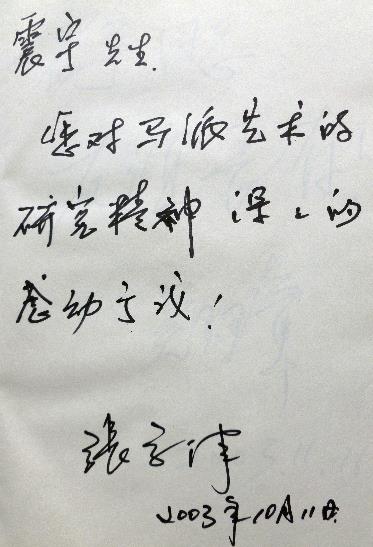 震宇先生.
您对马派艺术的
研究精神深々的
感动了我!
張学津
2003年10月11日